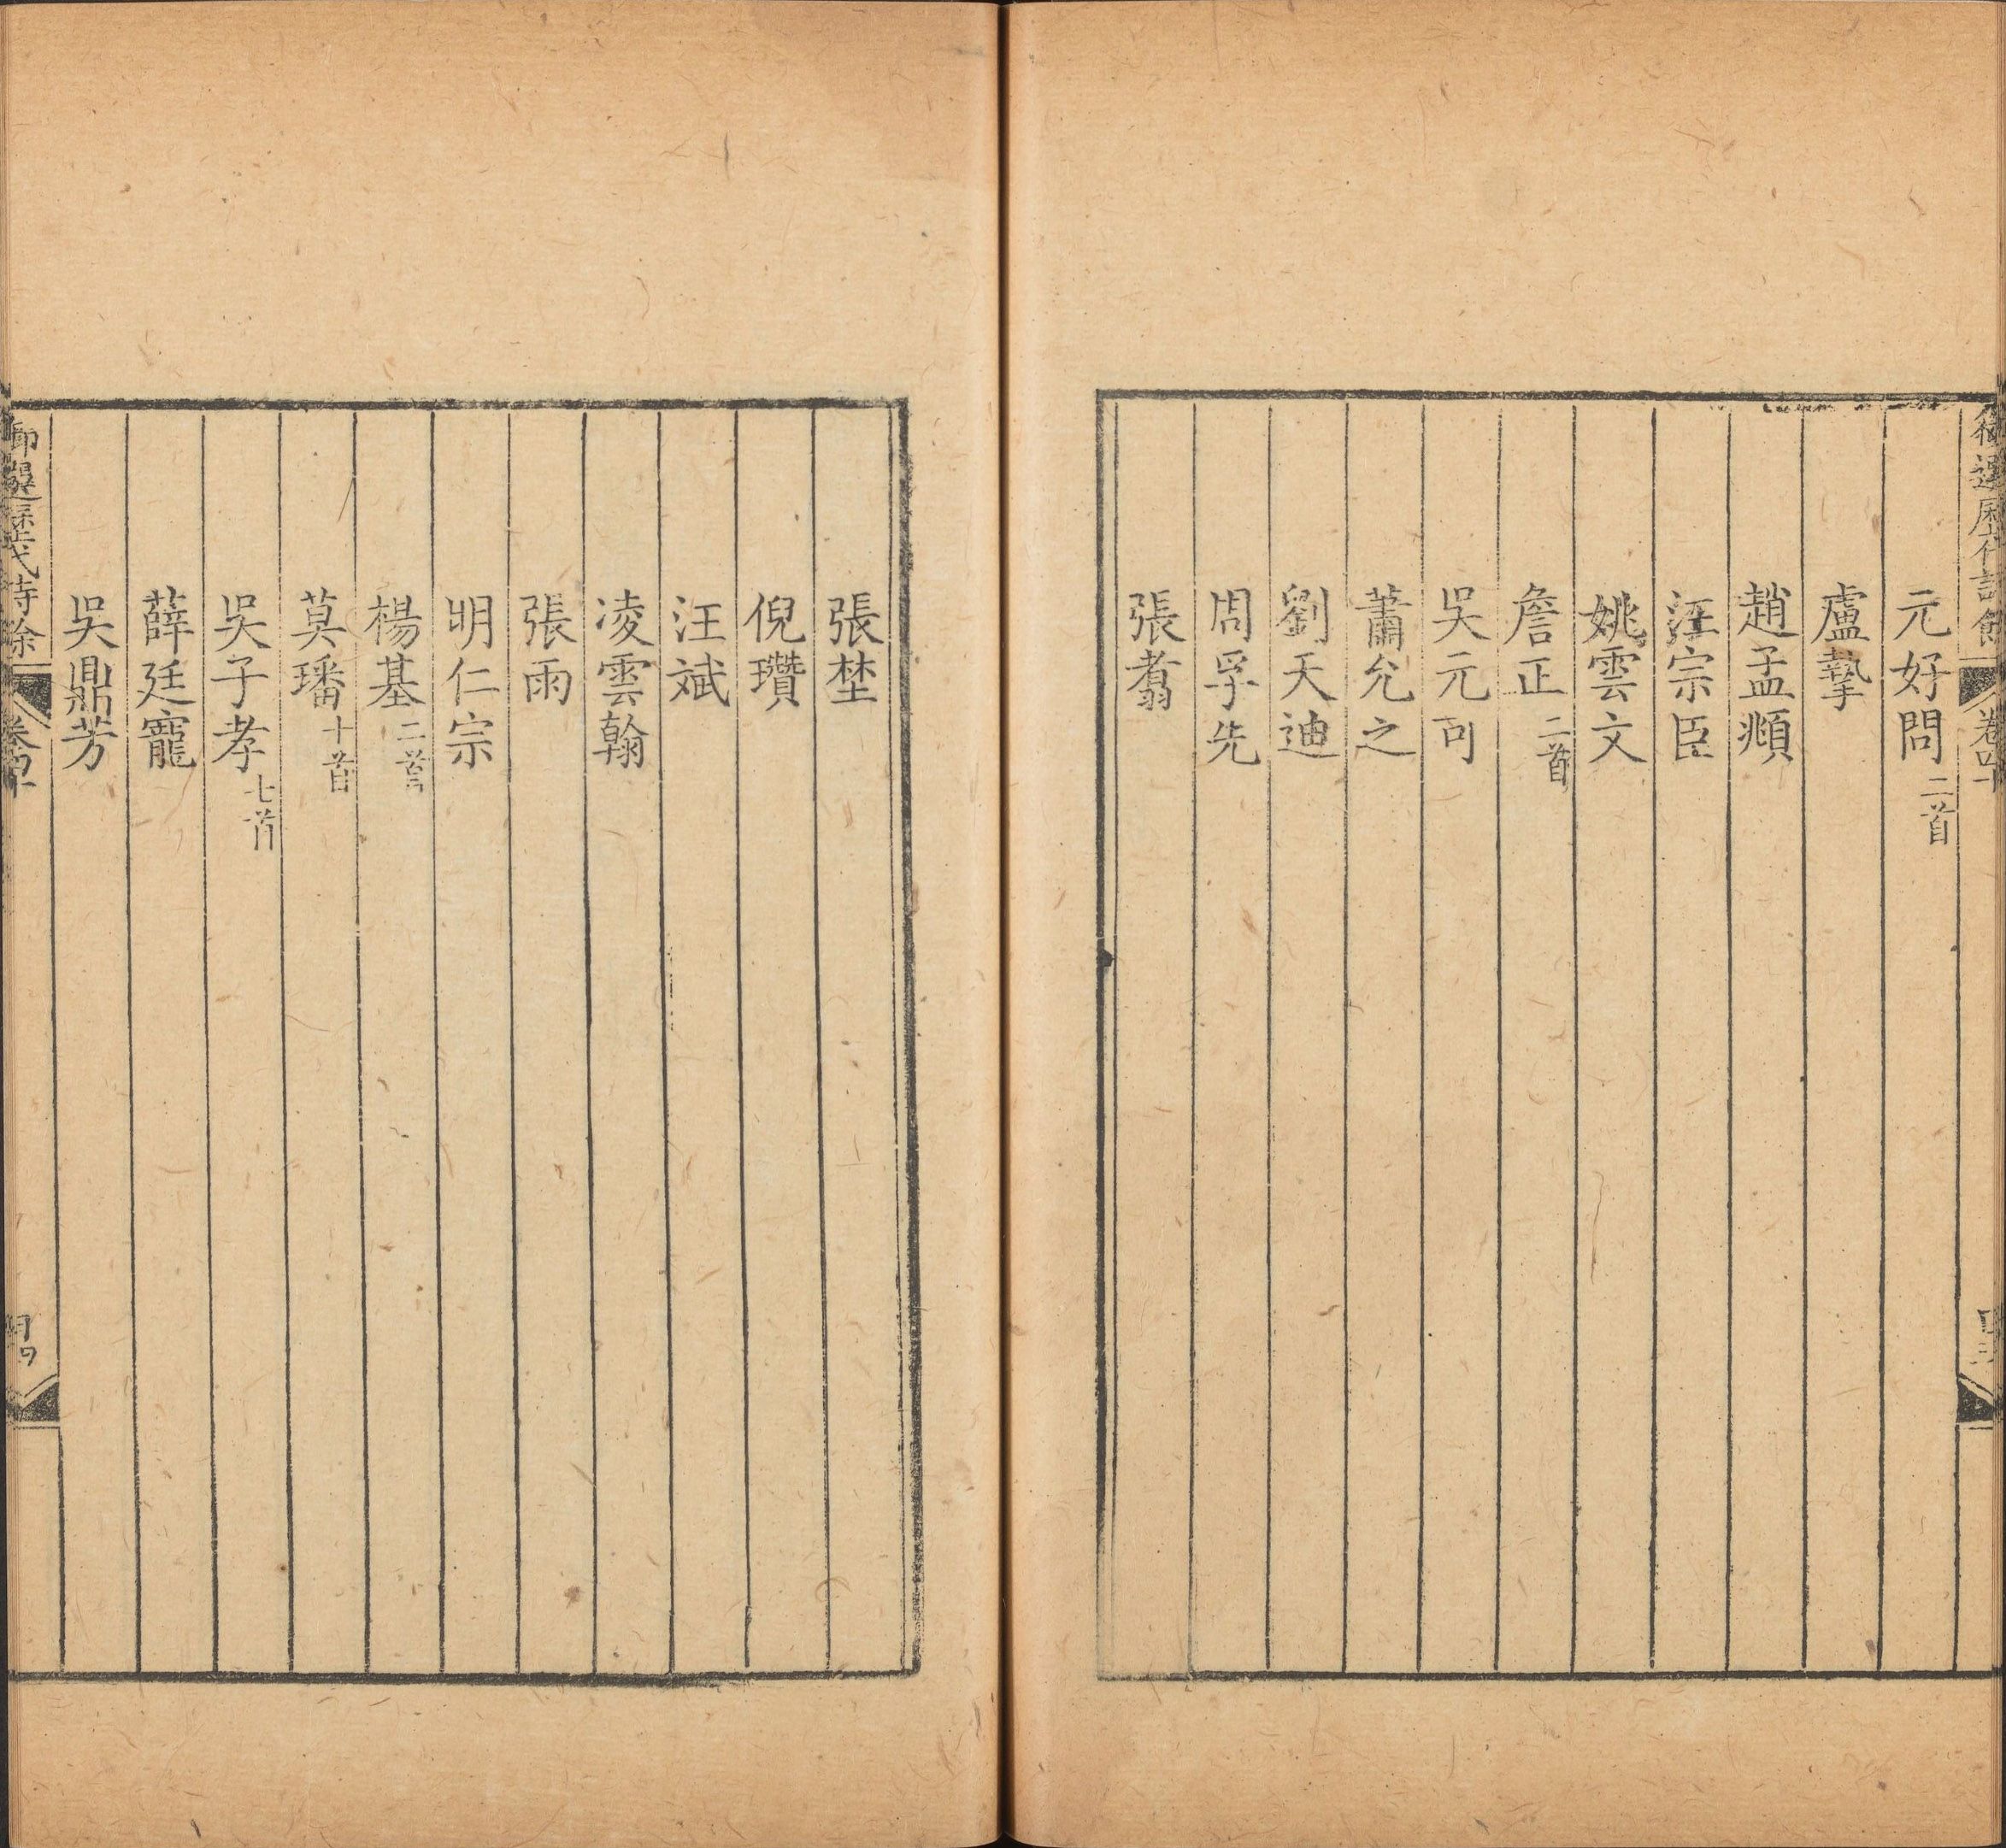 御選歷代詩餘 卷四十
元好問 二首
盧摯
趙孟頫
汪宗臣
姚雲文
詹正 二首
吳元可
蕭允之
劉天迪
周孚先
張翥
張埜
倪瓚
汪斌
凌雲翰
張雨
明仁宗
楊基 二首
莫璠 十首
吳子孝 七首
薛廷寵
吳鼎芳
御選歷代詩餘 卷四十